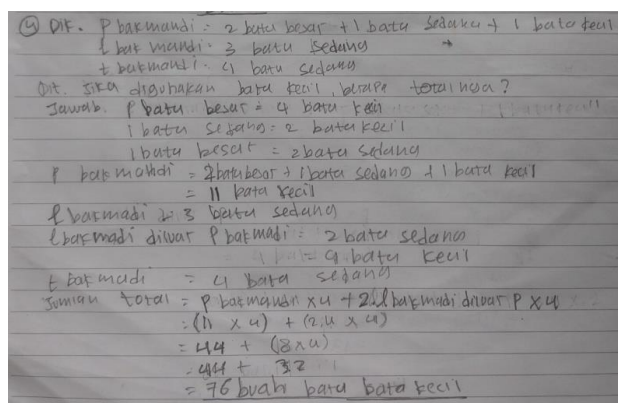 ④ Dik. P bakmandi = 2 batu besar + 1 batu sedang + 1 bata kecil
l bak mandi = 3 batu sedang
t bakmandi = 4 batu sedang
Dit. Jika digunakan batu kecil, berapa totalnya?
Jawab. 1 batu besar = 4 batu kecil
1 batu sedang = 2 batu kecil
1 batu besar = 2 batu sedang
P bakmandi = 2 batu besar + 1 batu sedang + 1 batu kecil
= 11 bata kecil
l bakmadi = 3 batu sedang
l bakmadi diluar P bakmadi = 2 batu sedang
= 4 batu kecil
t bakmadi = 4 bata sedang
Jumlah total = P bakmandi x 4 + 2.l bakmadi diluar P x 4
= (11 x 4) + (2.4 x 4)
= 44 + (8 x 4)
= 44 + 32
= 76 buah batu bata kecil